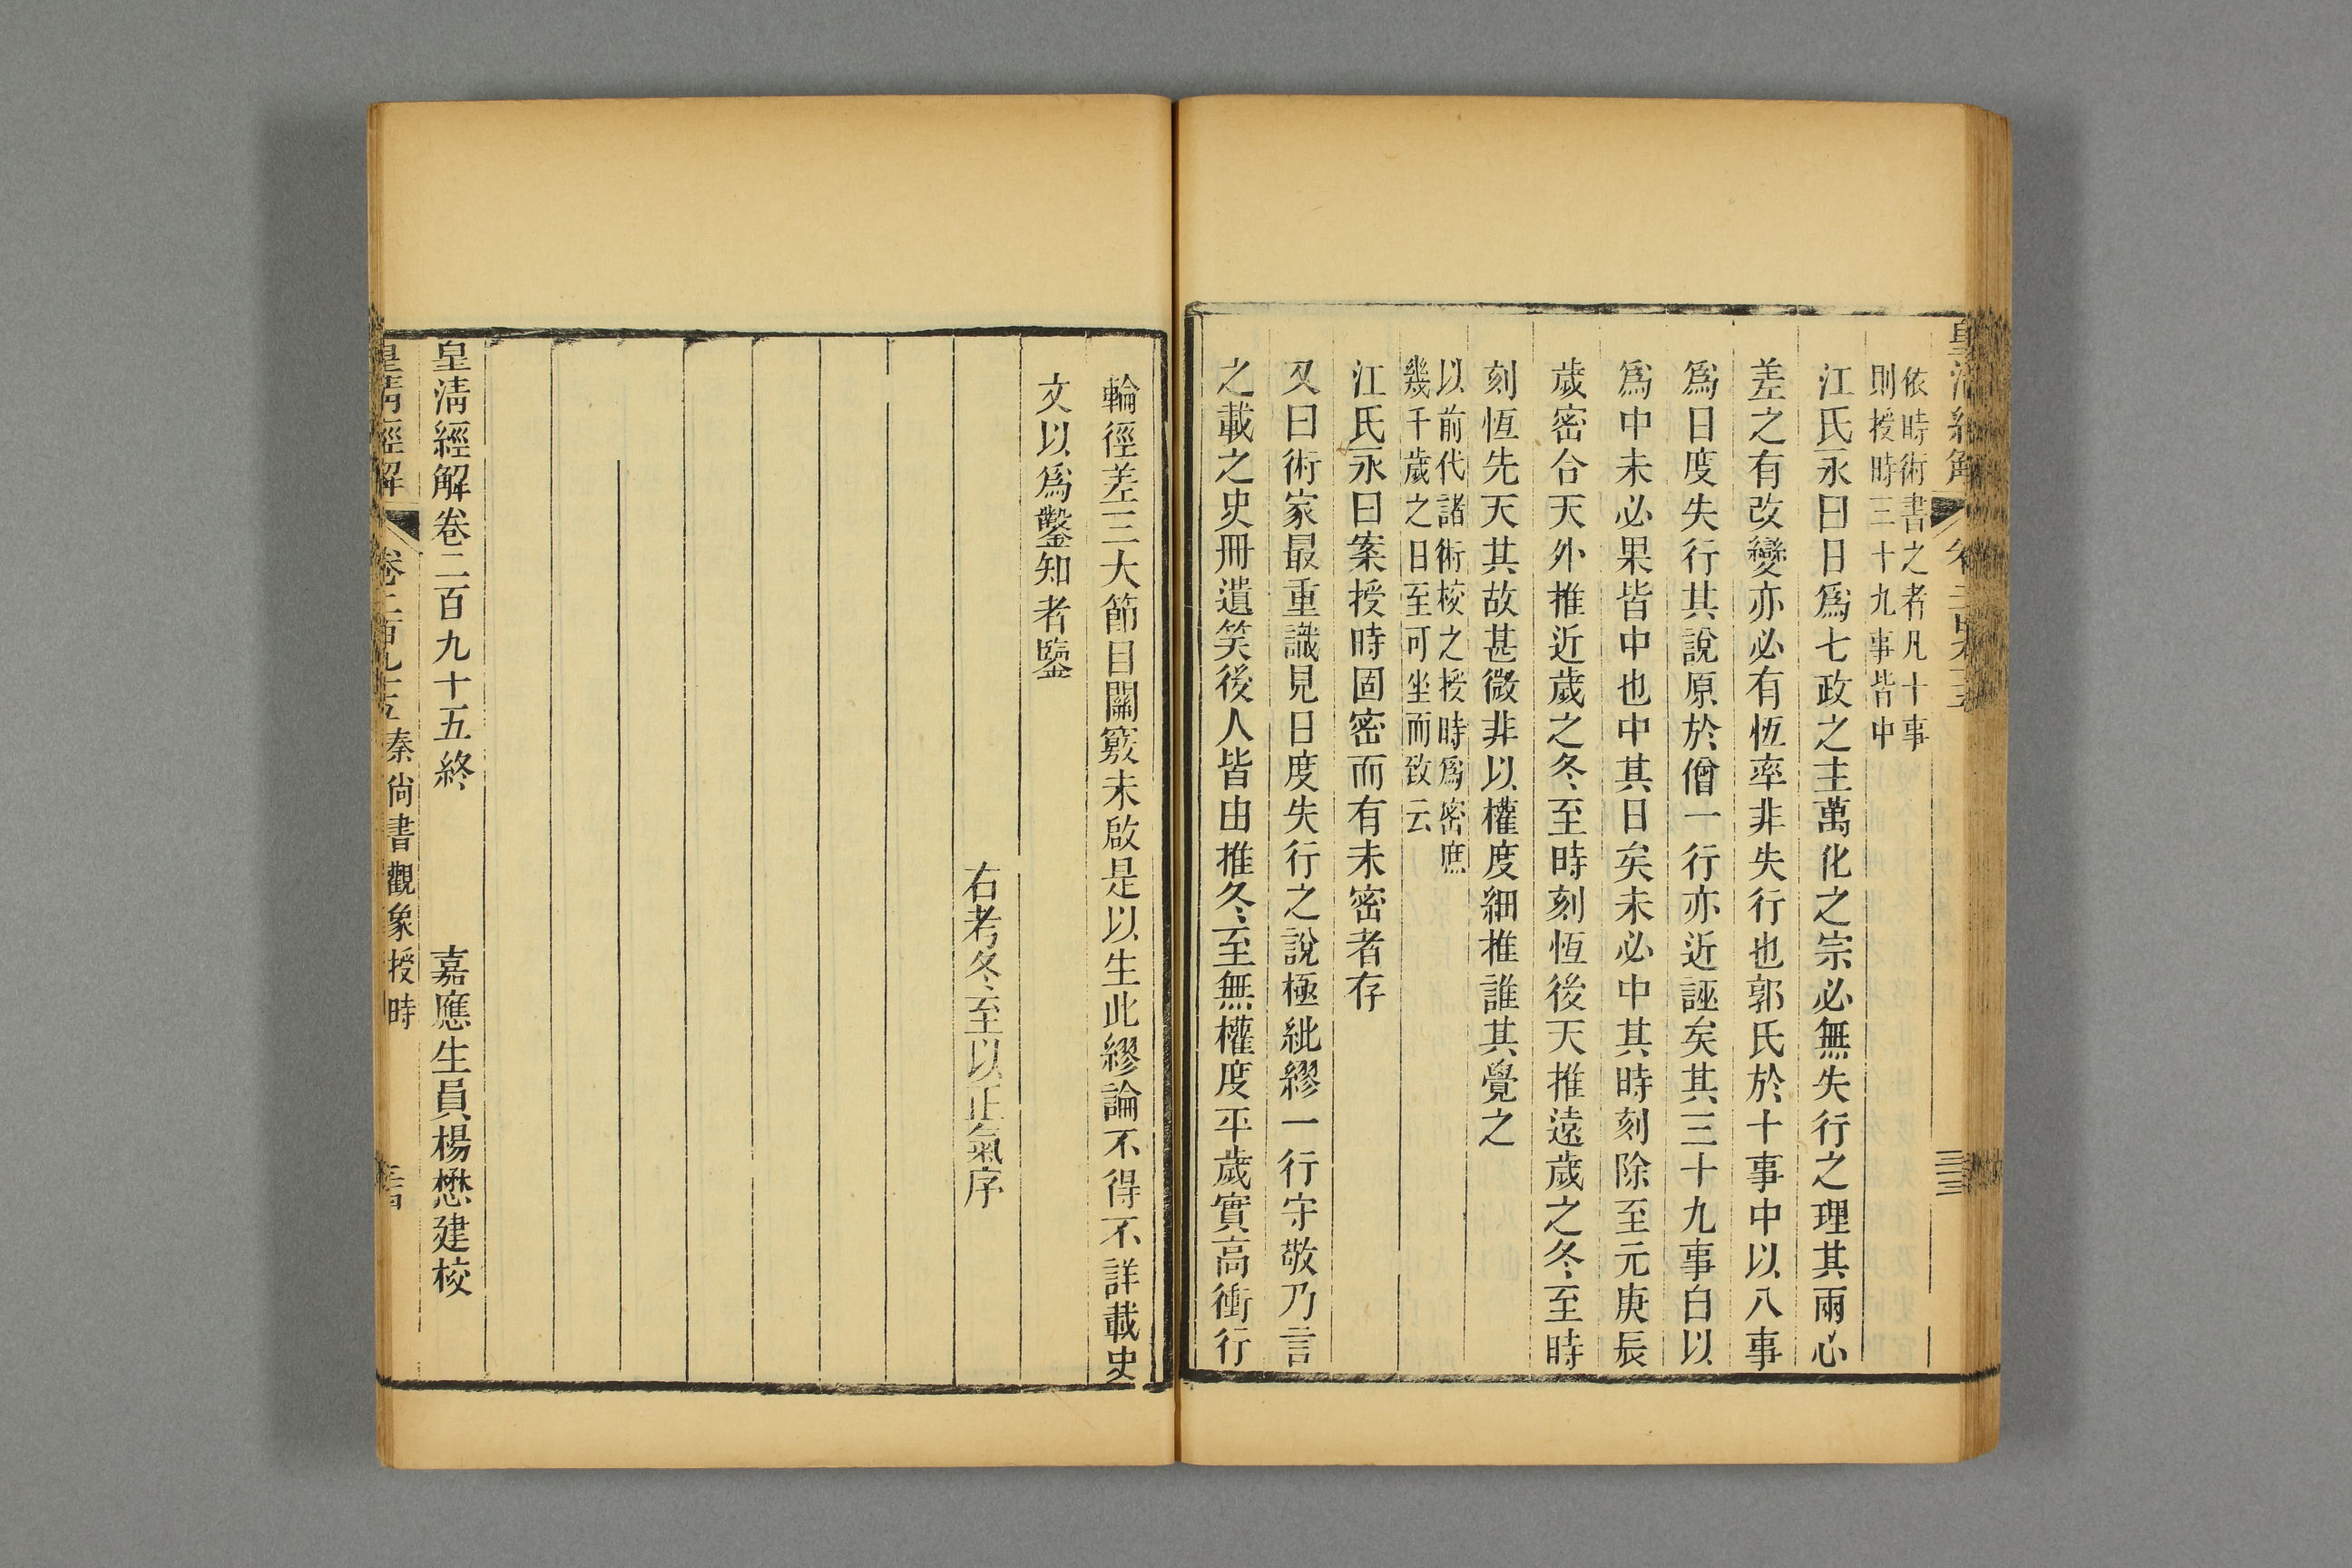 皇清經解
依時術書之者凡十事
則授時三十九事皆中
江氏永曰日爲七政之主萬化之宗必無失行之理其兩心
差之有改變亦必有恆率非失行也郭氏於十事中以八事
爲日度失行其說原於僧一行亦近誣矣其三十九事自以
爲中未必果皆中也中其日矣未必中其時刻除至元庚辰
歲密合天外推近歲之冬至時刻恆後天推遠歲之冬至時
刻恆先天其故甚微非以權度細推誰其覺之
以前代諸術校之授時爲密庶
幾千歲之日至可坐而致云
江氏永曰案授時固密而有未密者存
又曰術家最重識見日度失行之說極紕繆一行守敬乃言
之載之史冊遺笑後人皆由推冬至無權度平歲實高衝行
輪徑差三大節目關竅未啟是以生此繆論不得不詳載史
文以爲鑿知者鑒
右考冬至以正氣序
皇清經解卷二百九十五終 嘉應生員楊懋建校
皇清經解 卷二百九十五 秦尙書觀象授時